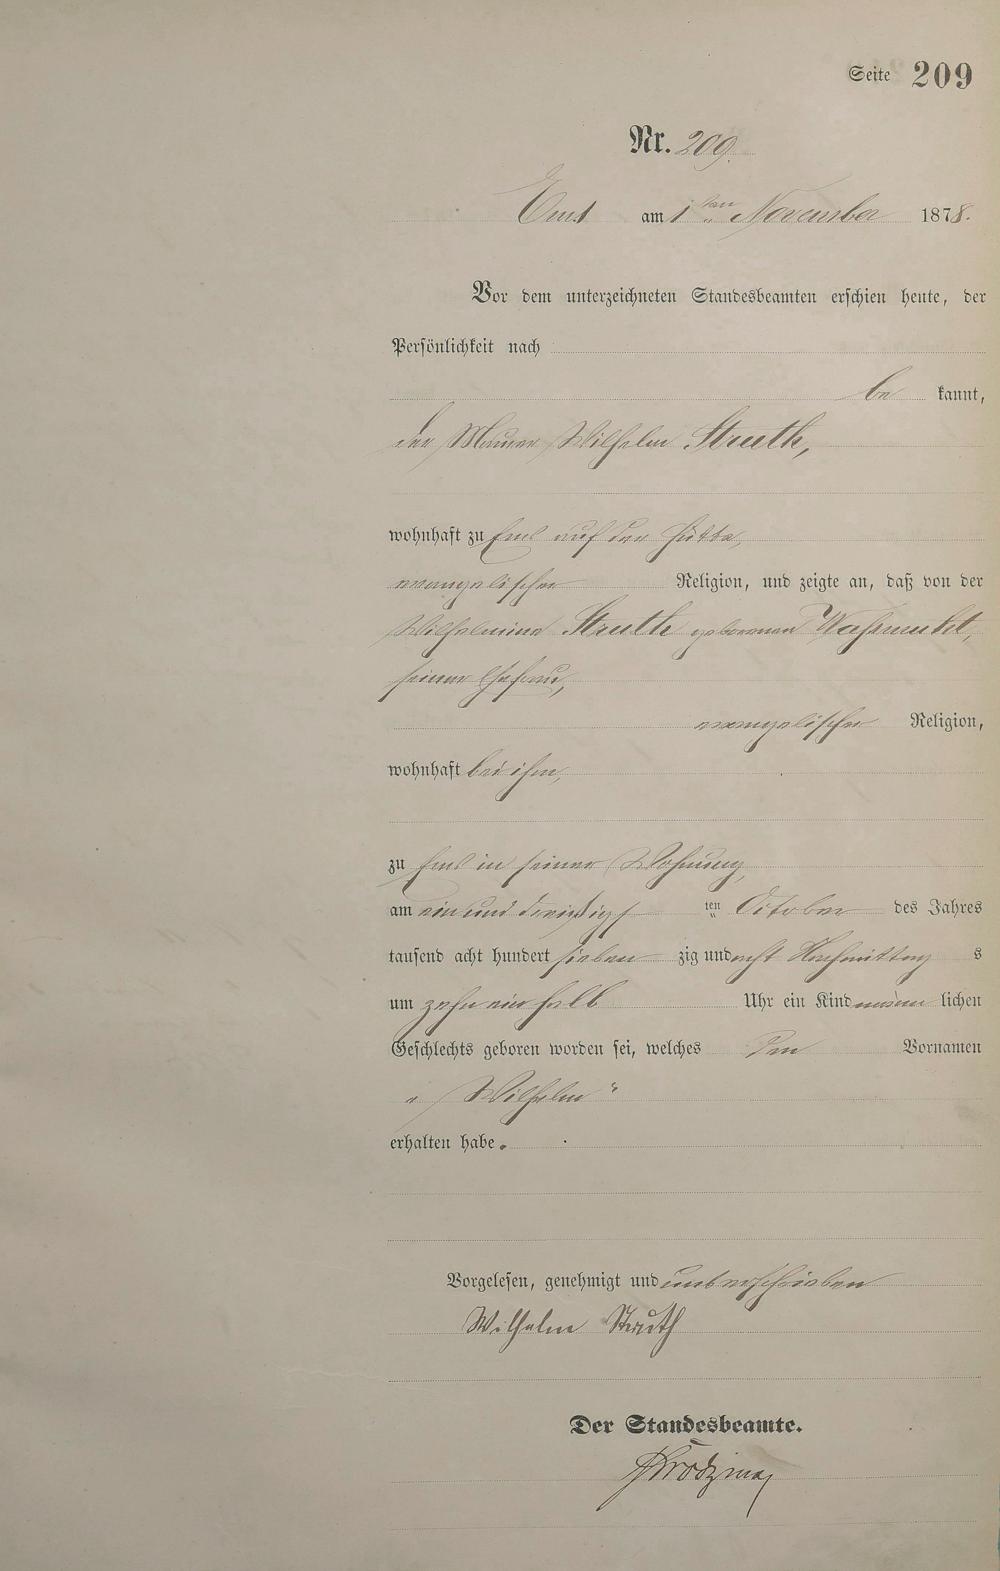 Seite 209
Nr. 209.
Ems am 1ten November 1878.
Vor dem unterzeichneten Standesbeamten erschien heute, der
Persönlichkeit nach
be kannt,
der Maurer Wilhelm Struth,
wohnhaft zu Ems auf der Hütte,
evangelischer Religion, und zeigte an, daß von der
Wilhelmine Struth geborenen
seiner Ehefrau,
evangelischer Religion,
wohnhaft bei ihm,
zu Ems in seiner Wohnung,
am ein und dreißigs ten October des Jahres
tausend acht hundert sieben zig und acht Nachmittag s
um zehn ein halb Uhr ein Kind männ lichen
Geschlechts geboren worden sei, welches den Vornamen
„Wilhelm“
erhalten habe.
Vorgelesen, genehmigt und unterschrieben
Wilhelm Struth
Der Standesbeamte.